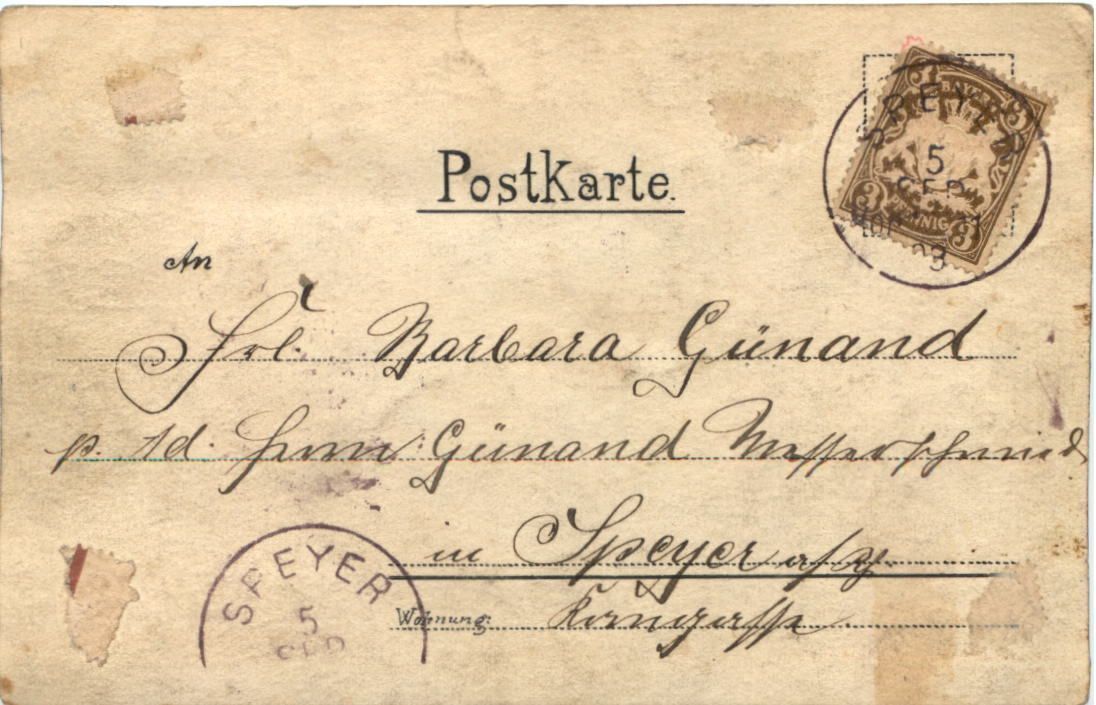 Postkarte.
BAYERN
3 3
3 PFENNIG 3
SPEYER
5
SEP
An
Frl. Barbara Günand
p. Ad. Herrn Günand Messerschmied
in Speyer a/
SPEYER
5
SEP
Wohnung: Korngasse